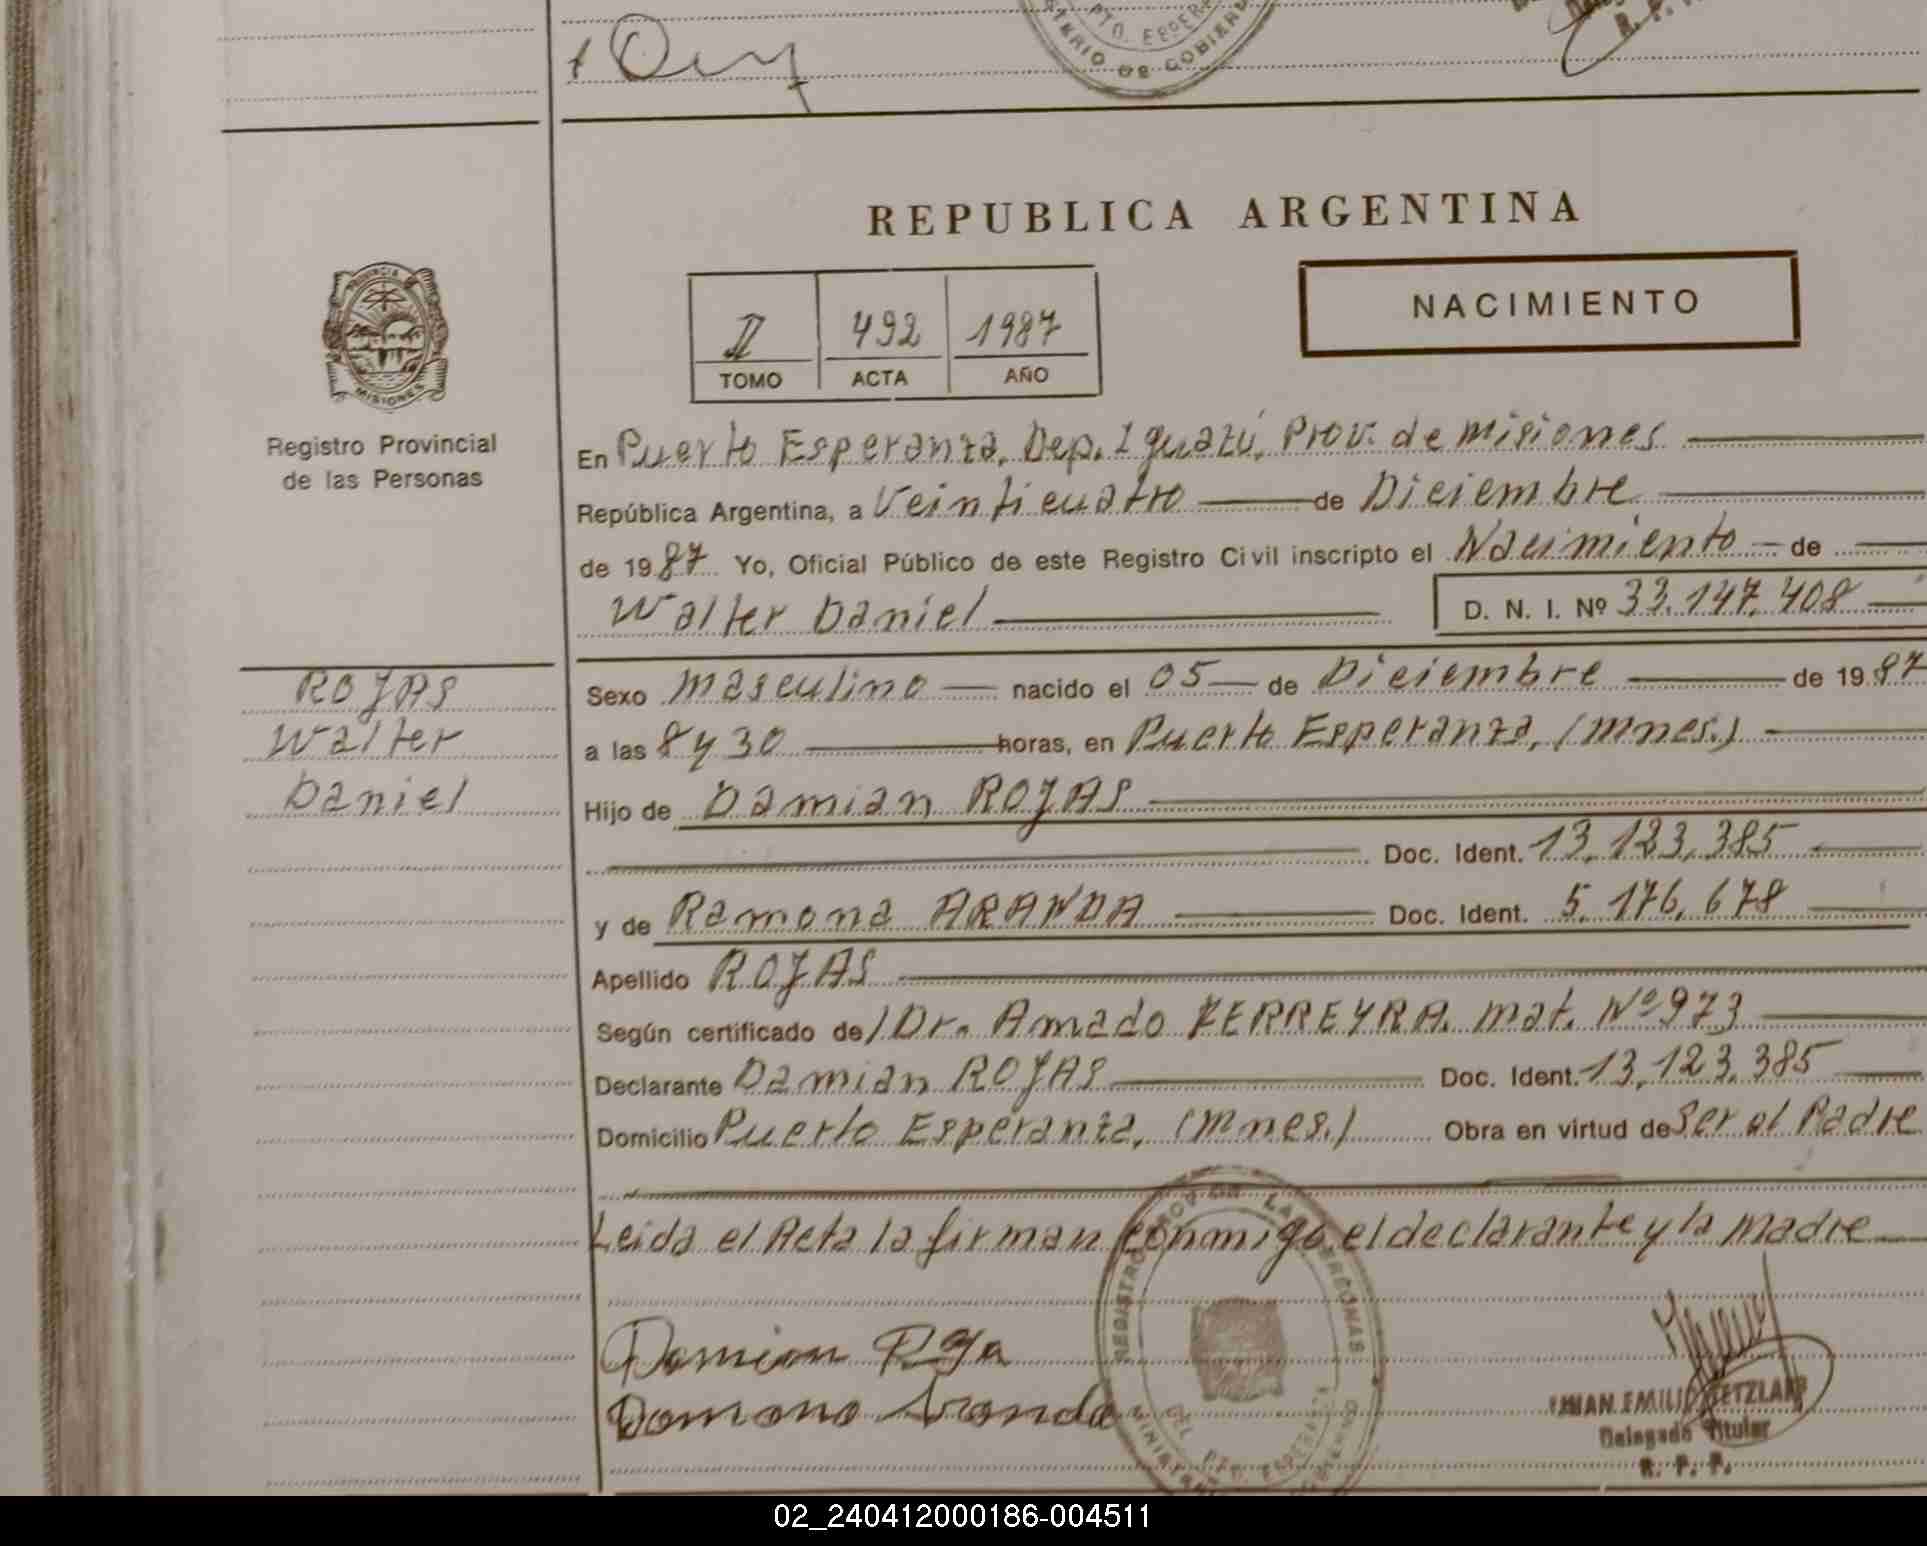 PTO. ESPERA
TERIO DE GOBIER
REPUBLICA ARGENTINA
PROVINCIA DE
MISIONES
Registro Provincial
de las Personas
II 492 1987
TOMO ACTA AÑO
NACIMIENTO
En Puerto Esperanza, Dep. Iguazú, Prov. de Misiones
República Argentina, a Veinticuatro de Diciembre
de 1987 Yo, Oficial Público de este Registro Civil inscripto el Nacimiento de
Walter Daniel D. N. I. Nº 33.147.408
ROJAS
Walter
Daniel
Sexo Masculino nacido el 05 de Diciembre de 1987
a las 8 y 30 horas, en Puerto Esperanza, (Mnes.)
Hijo de Damian ROJAS
Doc. Ident. 13.123.385
y de Ramona ARANDA Doc. Ident. 5.176.678
Apellido ROJAS
Según certificado de/ Dr. Amado FERREYRA. Mat. Nº 973
Declarante Damian ROJAS Doc. Ident. 13.123.385
Domicilio Puerto Esperanza, (Mnes.) Obra en virtud de Ser el Padre
Leida el Acta la firman conmigo el declarante y la Madre
Damian Roja
Ramona Aranda
REGISTRO PROV. DE LAS PERSONAS
PTO. ESPERANZA
JUAN EMILIO
Delegado Titular
R. P. P.
02_240412000186-004511